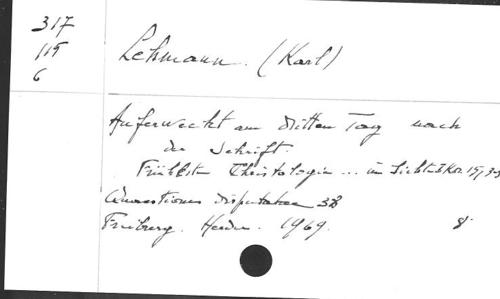 317
115
6
Lehmann. (Karl)
Auferweckt am dritten Tag nach
der Schrift.
Früheste Christologie ... im Licht 1 Kor. 15, 3-5
Quaestiones disputatae 38
Freiburg. Herder. 1969. 8°